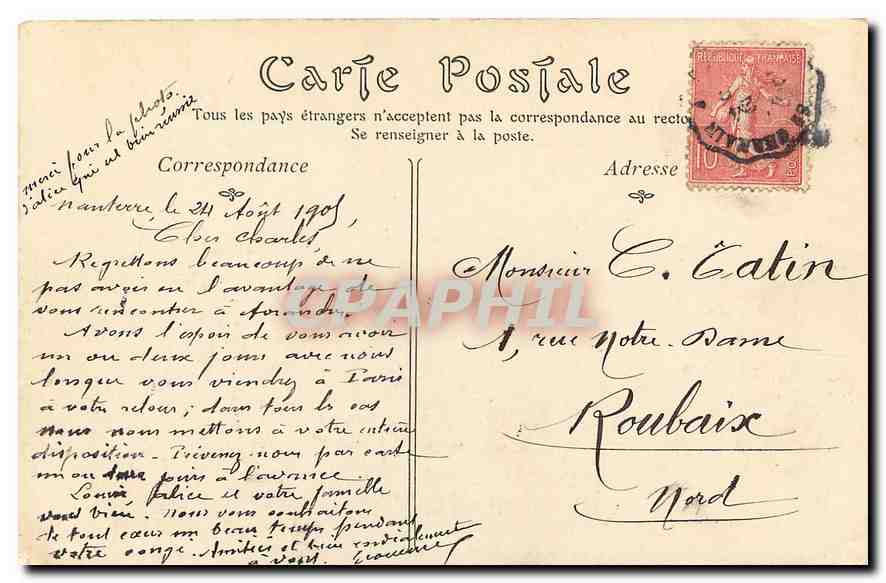 Carte Postale
Tous les pays étrangers n'acceptent pas la correspondance au recto
Se renseigner à la poste.
Correspondance
Adresse
REPUBLIQUE FRANÇAISE
10
merci pour la photo
d'alice qui est bien réussie
Nanterre, le 24 Août 1905
Cher Charles,
Regrettons beaucoup de ne
pas avoir eu l'avantage de
vous rencontrer à
Avons l'espoir de vous avoir
un ou deux jours avec nous
lorsque vous viendrez à Paris
à votre retour; dans tous les cas
nous nous mettons à votre entière
disposition. Prévenez-nous par carte
un ou deux jours à l'avance.
Louise, alice et votre famille
vont bien. Nous vous souhaitons
de tout cœur un beau temps pendant
votre congé. Amitiés et bien cordialement
à vous.
Monsieur C. Tatin
1, rue Notre-Dame
Roubaix
Nord
CPAPHIL